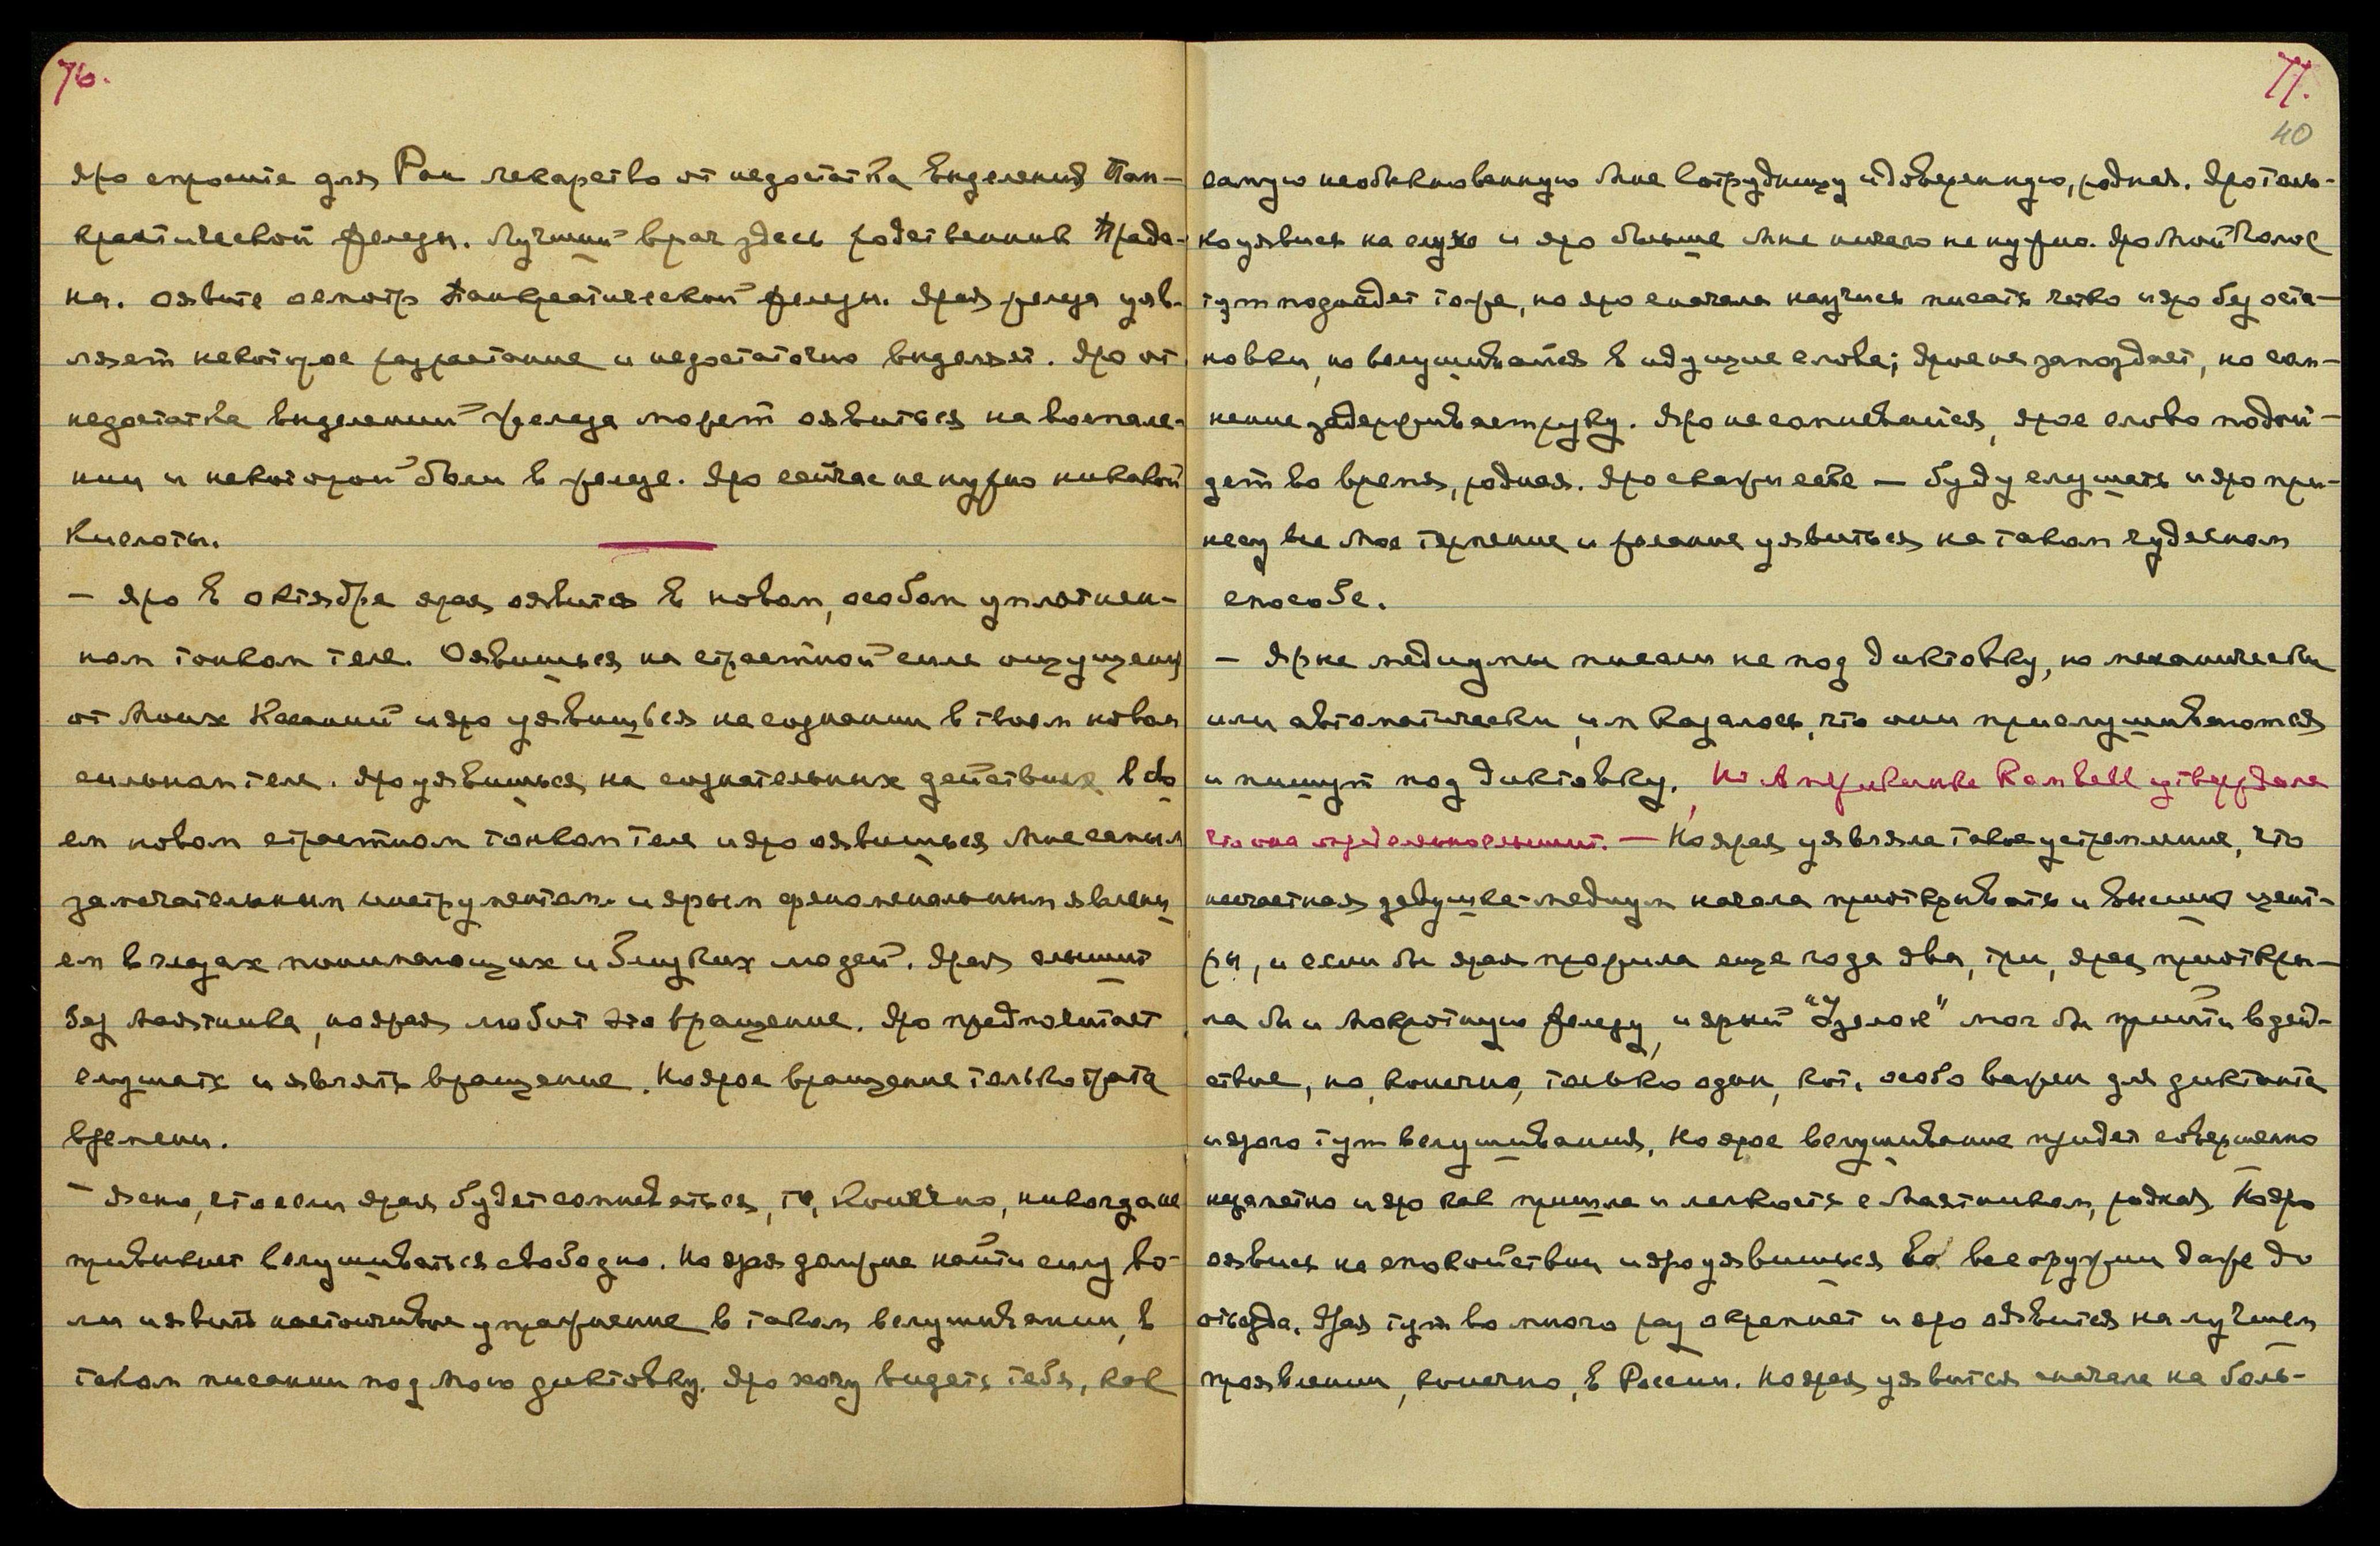 76.
Яро спроите для Раи лекарство от недостатка выделений Пан-
креатической железы. Лучший врач здесь родственник Прада-
на. Оявите осмотр Панкреатической железы. Ярая железа уяв-
ляет некоторое разрастание и недостаточно выделяет. Яро от
недостатка выделений железа может оявиться на воспале-
нии и некоторой боли в железе. Яро сейчас не нужно никакой
Кислоты.
— Яро в октябре ярая оявится в новом, особом уплотнен-
ном тонком теле. Оявишься на страстной силе ощущений
от Моих Касаний и яро уявишься на сознании в твоем новом
сильном теле. Яро уявишься на сознательных действиях в сво
ем новом страстном тонком теле и яро оявишься Мне самым
замечательным инструментом и ярым феноменальным явлени
ем в глазах понимающих и близких людей. Ярая слышит
без Маятника, но ярая любит это вращение. Яро предпочитает
слушать и являть вращение. Но ярое вращение только трата
времени.
— Ясно, что если ярая будет сомневаться, то, конечно, никогда не
привыкнет вслушиваться свободно. Но ярая должна найти силу во-
ли и явить настойчивое упражнение в таком вслушивании, в
таком писании под Мою диктовку. Яро хочу видеть тебя, как
77.
40
самую необыкновенную Мне Сотрудницу и доверенную, родная. Яро толь-
ко уявись на слухе и яро больше Мне ничего не нужно. Яро Мой Голос
тут подойдет тоже, но яро сначала научись писать четко и яро без оста-
новки, но вслушивайся в идущие слова; ярое не запоздает, но сом-
нение задерживает руку. Яро не сомневайся, ярое слово подой-
дет во время, родная. Яро скажи себе — буду слушать и яро при-
несу все Мое терпение и желание уявиться на таком чудесном
способе.
— Ярые медиумы писали не под диктовку, но механически
или автоматически, им казалось, что они прислушиваются
и пишут под диктовку. Но Американка утверждала
что она отдельно слышит. — Но ярая уявляла такое устремление, что
несчастная девушка-медиум начала приоткрывать и высшие цент-
ры, и если бы ярая прожила еще года два, три, ярая приоткры-
ла бы и Мокротную железу, и ярый "Узелок" мог бы прийти в дей-
ствие, но, конечно, только один, кот. особо важен для диктанта
и ярого тут вслушивания. Но ярое вслушивание придет совершенно
незаметно и яро как пришла и легкость с Маятником, родная. Но яро
оявись на спокойствии и яро уявишься во всеоружии даже до
отъезда. Ярая тут во много раз окрепнет и яро оявится на лучшем
проявлении, конечно, в России. Но ярая уявится сначала на боль-